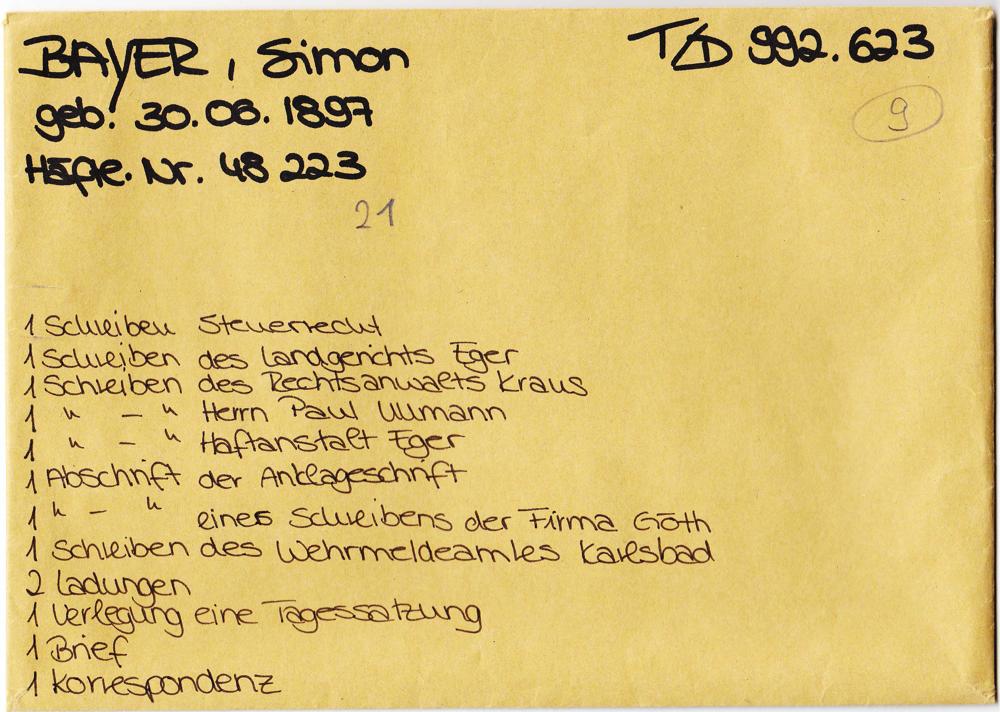 BAYER, Simon
T/D 992.623
geb. 30.06.1897
9
Häftl. Nr. 48 223
21
1 Schreiben Steuerrecht
1 Schreiben des Landgerichts Eger
1 Schreiben des Rechtsanwalts Kraus
1 " - " Herrn Paul Ullmann
1 " - " Haftanstalt Eger
1 Abschrift der Anklageschrift
1 " - " eines Schreibens der Firma Göth
1 Schreiben des Wehrmeldeamtes Karlsbad
2 Ladungen
1 Verlegung eine Tagessatzung
1 Brief
1 Korrespondenz